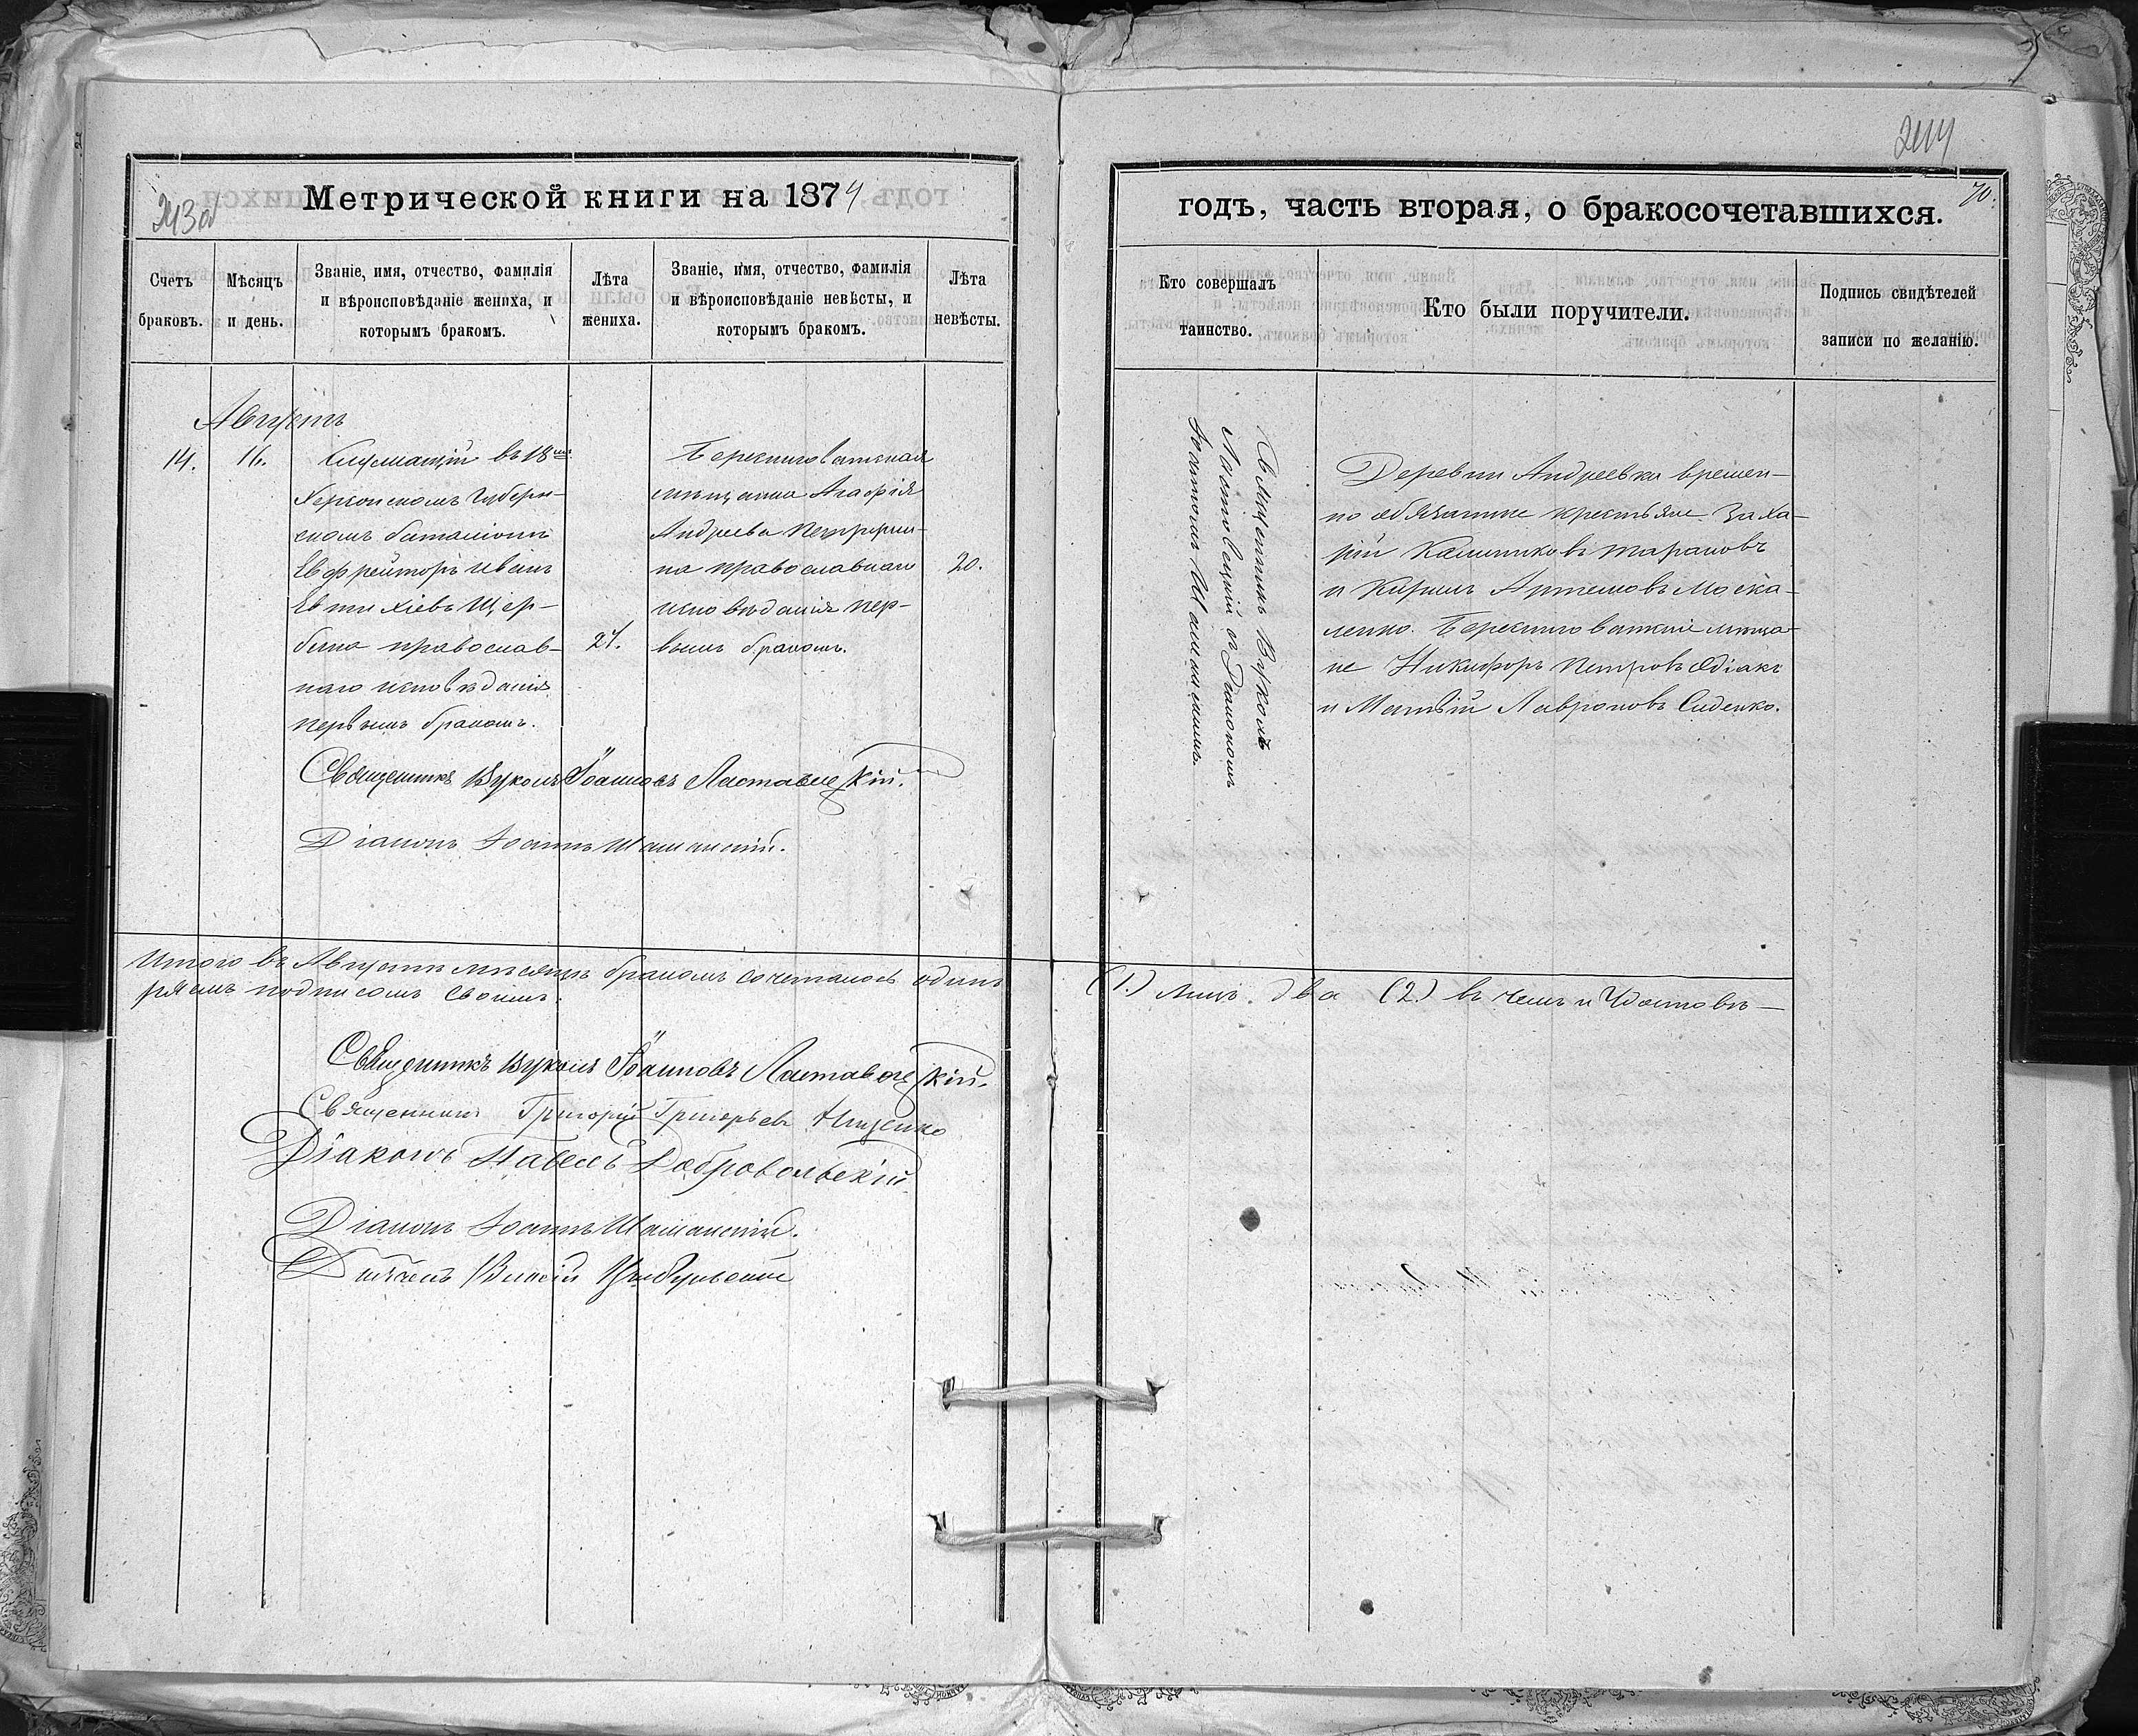 243об
Метрической книги на 1874
Счетъ браковъ.
Мѣсяцъ и день.
Званіе, имя, отчество, фамилія
и вѣроисповѣданіе жениха, и
которымъ бракомъ.
Лѣта
жениха.
Званіе, имя, отчество, фамилія
и вѣроисповѣданіе невѣсты, и
которымъ бракомъ.
Лѣта
невѣсты.
Августъ
14.
16.
Служащій въ 18мъ
Херсонскомъ Губерн-
скомъ баталіонѣ
Ефрейторъ Иванъ
Евтихіевъ Щер-
бина православ-
наго исповѣданія
первымъ бракомъ.
27.
Береснеговатская
мѣщанка Агафія
Андреева
на православнаго
исповѣданія пер-
вымъ бракомъ.
20.
Священникъ Вуколъ Іоанновъ Ластавецкій.
Діаконъ Іоаннъ Шаманскій.
Итого въ Августѣ мѣсяцѣ бракомъ сочеталось одинъ
ряемъ подписомъ своимъ.
Священникъ Вуколъ Іоанновъ Ластавецкій.
Священникъ Григорій Григорьевъ Ищенко
Діаконъ Павелъ Добровольскій
Діаконъ Іоаннъ Шаманскій.
244
70.
годъ, часть вторая, о бракосочетавшихся.
Кто совершалъ
таинство.
Кто были поручители.
Подпись свидѣтелей
записи по желанію.
Священникъ Вуколъ
Ластовецкій съ Діакономъ
Іоанномъ Шаманскимъ.
Деревни Андреевки времен-
но обязанные крестьяне Заха-
рій Калинниковъ Тарановъ
и Кирилъ Артемовъ Моска-
ленко. Береснеговатскіе мѣща-
не Никифоръ Петровъ
и Матвій Лавроновъ Сиденко.
(1.) лицъ два (2.) въ чемъ и удостовѣ-